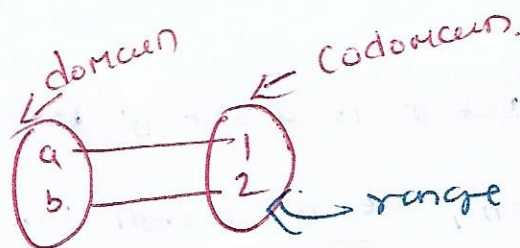 domain
Codomain.
a 1
b. 2
range